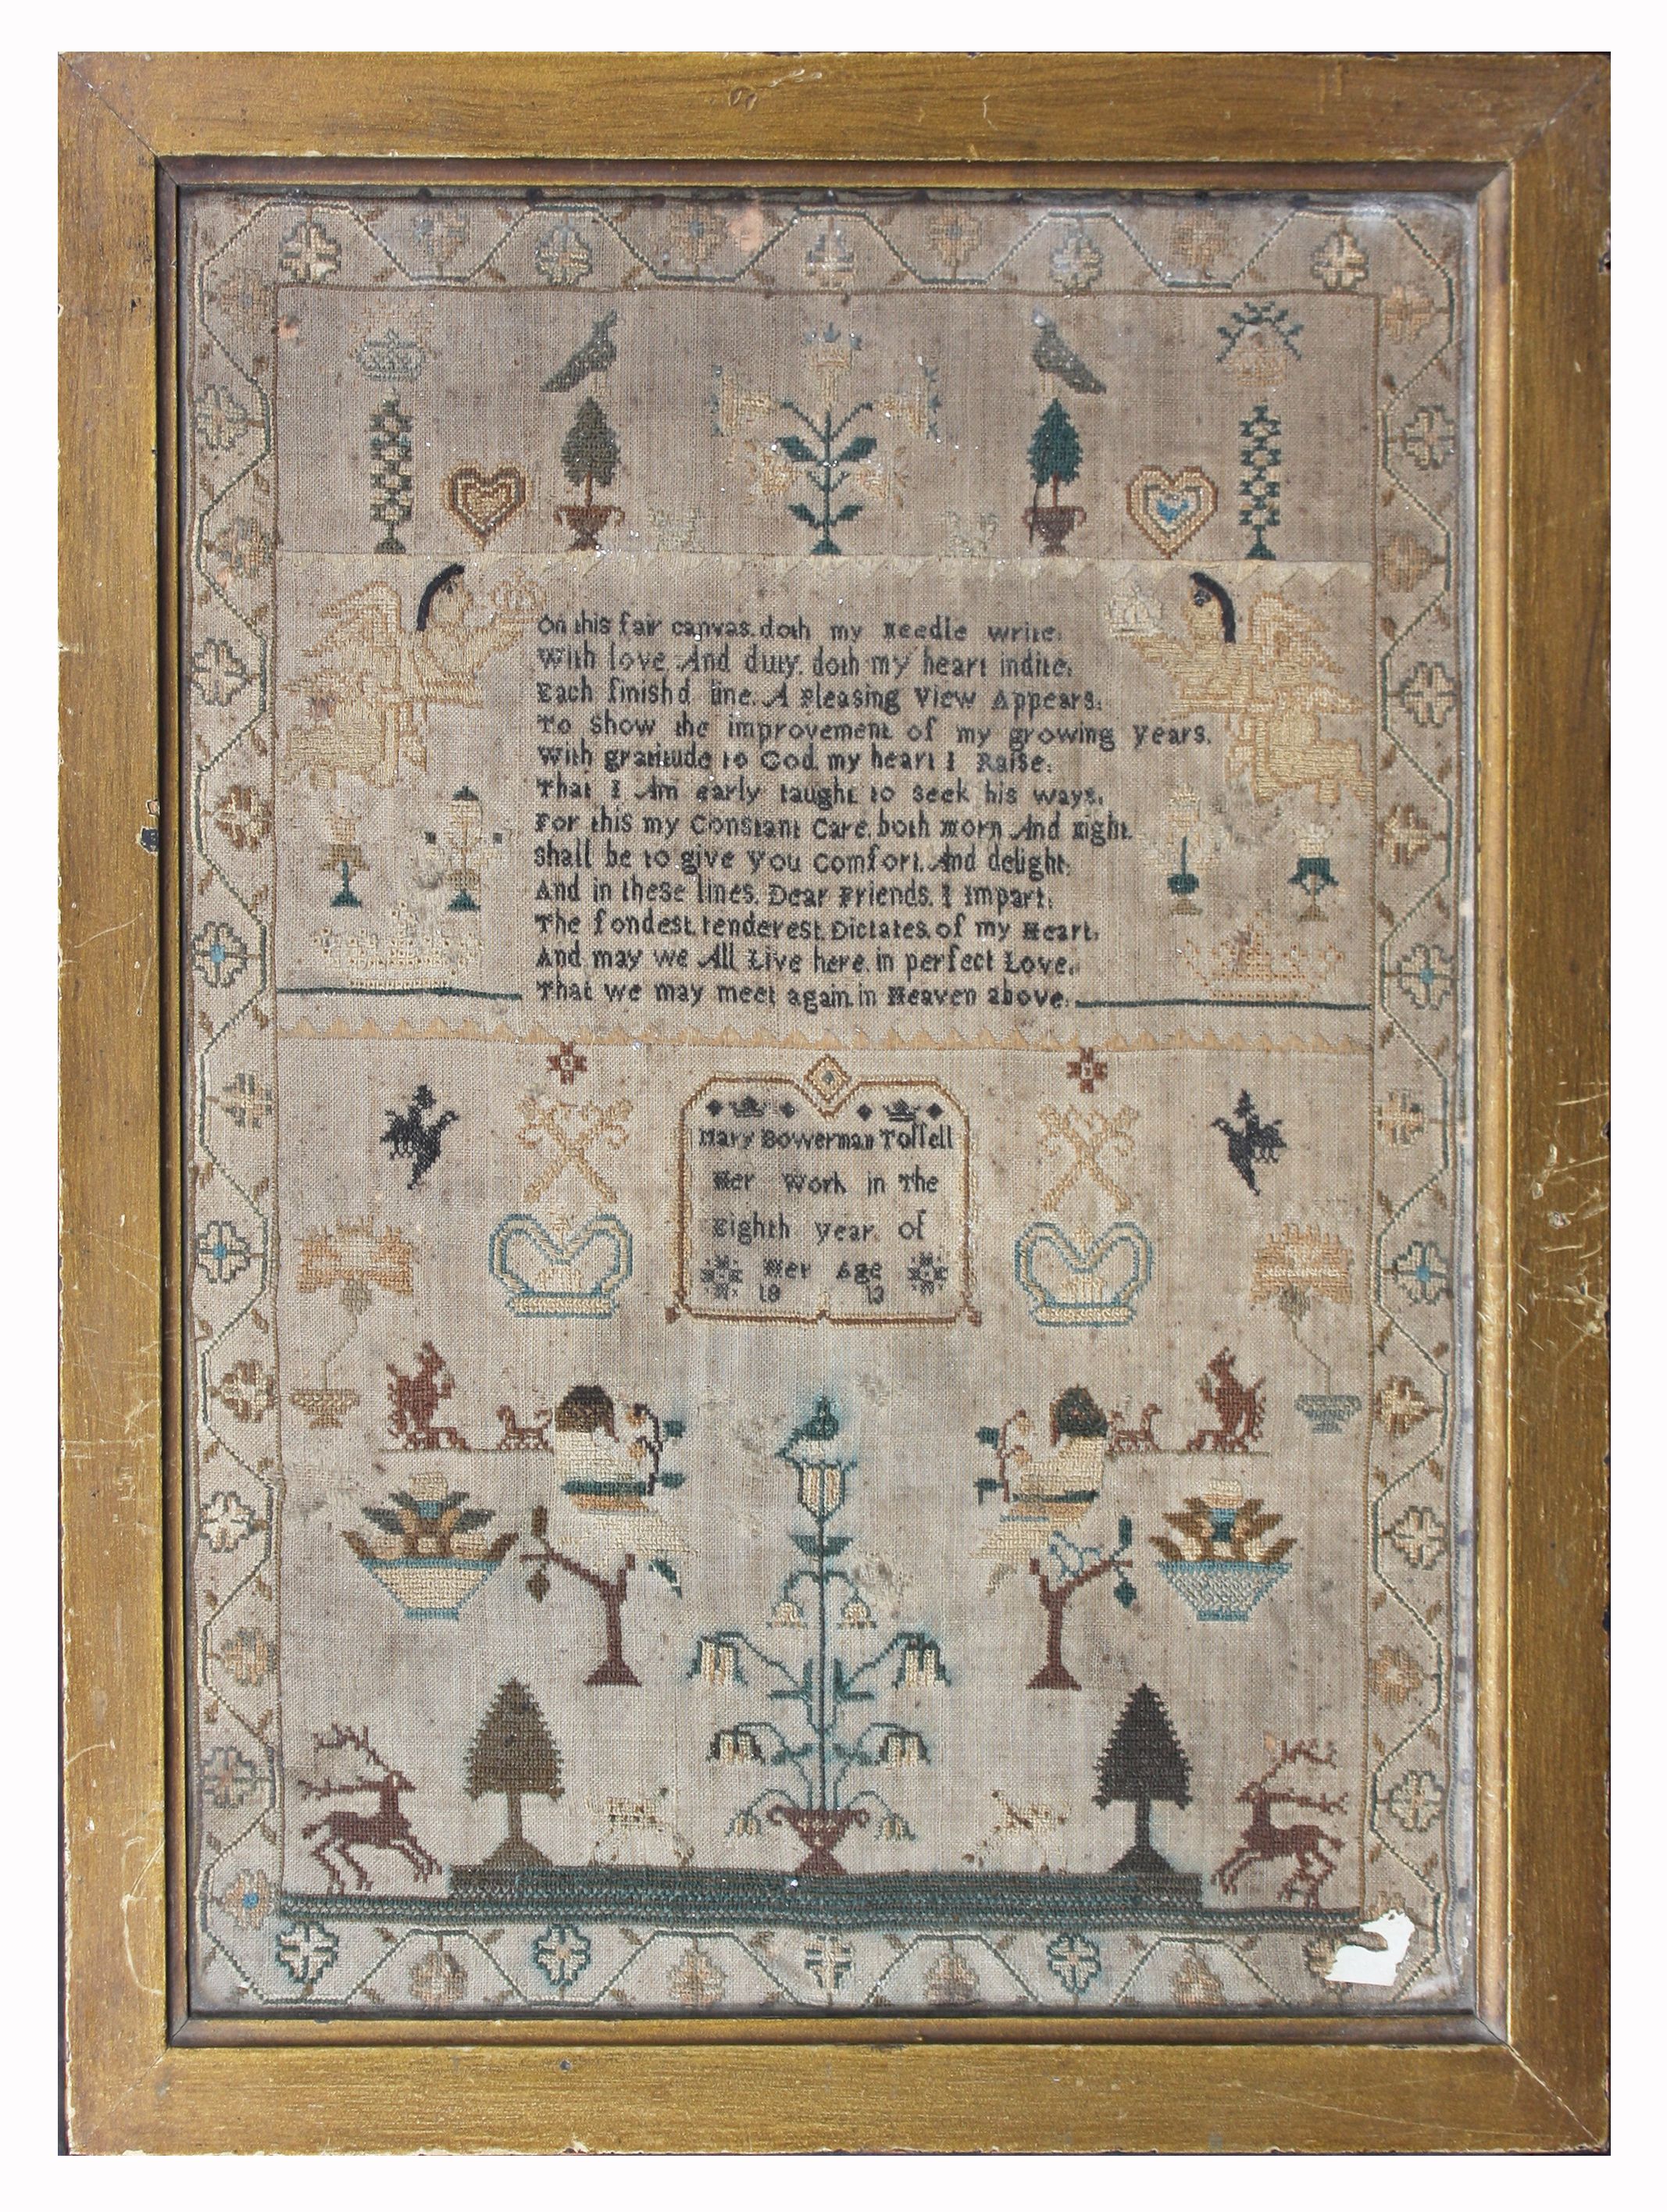 On this fair canvas. doth my Needle write.
With love And duty. doth my heart indite.
Each finish'd line. A Pleasing View Appears.
To Show the improvement of my growing Years.
With gratitude to God my heart I Raise.
That I Am early taught to Seek his ways.
For this my Constant Care. both Morn And Night.
Shall be to give you Comfort. And delight.
And in these lines. Dear Friends. I Impart.
The fondest. tenderest. Dictates. of my Heart.
And may we All Live here. in perfect Love.
That we may meet again in Heaven above.
Mary Bowerman Tossell
Her Work in The
Eighth year of
Her Age
18 13